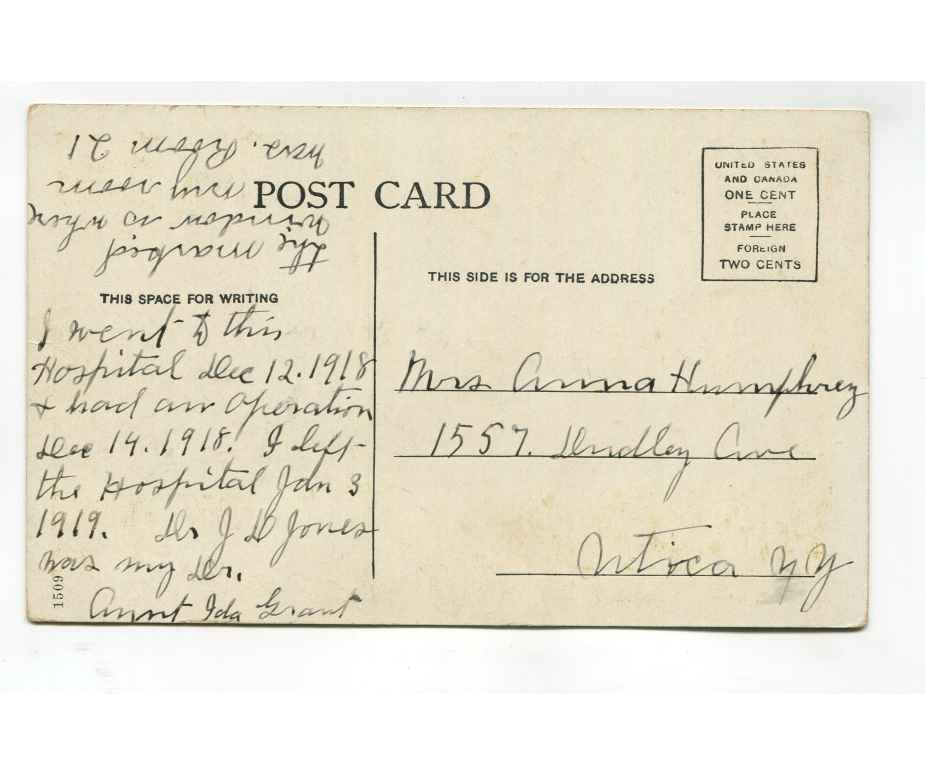 POST CARD
THIS SPACE FOR WRITING
I went to this
Hospital Dec 12. 1918
& had an Operation
Dec 14. 1918. I left
the Hospital Jan 3
1919. Dr J D Jones
was my Dr.
Aunt Ida Grant
the marked
window is where
my room
was. Room 21
1509
THIS SIDE IS FOR THE ADDRESS
UNITED STATES
AND CANADA
ONE CENT
PLACE
STAMP HERE
FOREIGN
TWO CENTS
Mrs Anna Humphrey
1557. Dudley Ave
Utica NY